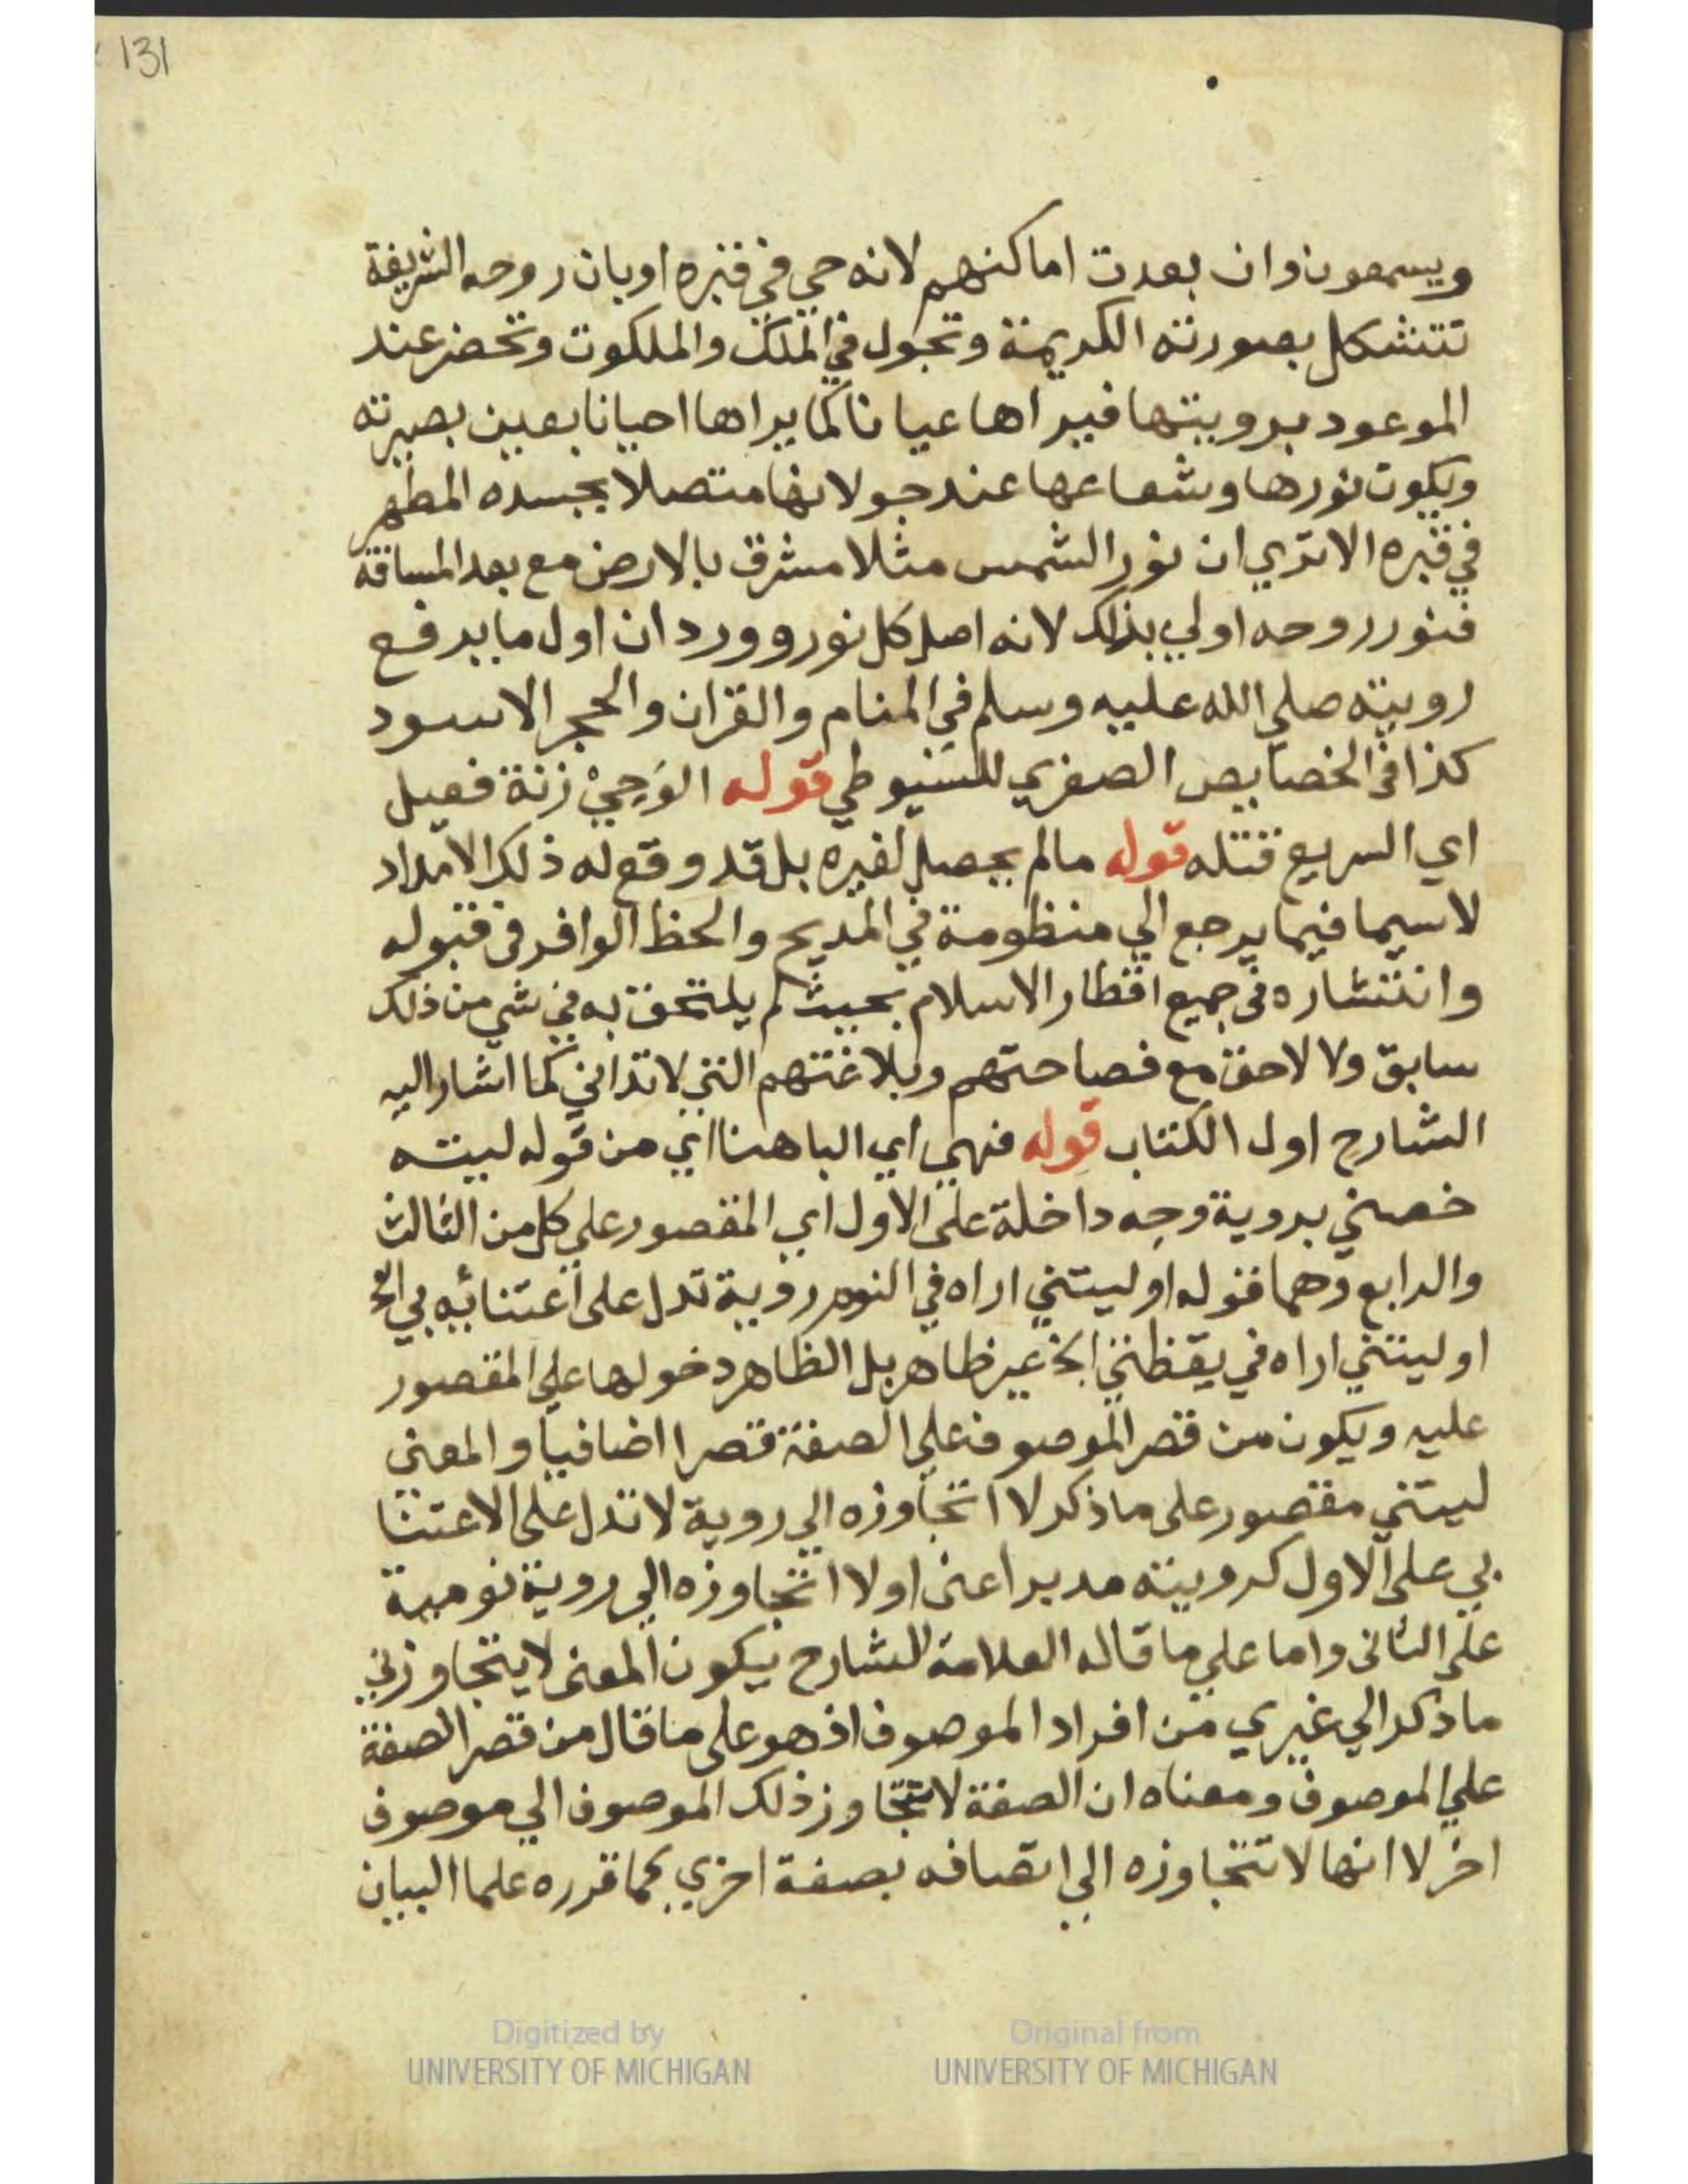 131
ويسمعون وان بعدت اماكنهم لانه حي في قبره او بان روحه الشريفة
تتشكل بصورته الكريمة وتجول في الملك والملكوت وتحضر عند
الموعود برويتها فيراها عيانا كما يراها احيانا بعين بصيرته
ويكون نورها وشعاعها عند جولانها متصلا بجسده المطهر
في قبره الا تري ان نور الشمس مثلا مشرق بالارض مع بعد المسافة
فنور روحه اولي بذلك لانه اصل كل نور وورد ان اول ما يرفع
رويته صلي الله عليه وسلم في المنام والقران والحجر الاسود
كذا في الخصايص الصغري للسيوطي قوله الوَحِيْ زنة فعيل
اي السريع قتله قوله مالم يحصل لغيره بل قد وقع له ذلك الامداد
لاسيما فيما يرجع الي منظومة في المديح والحظ الوافر في قبوله
وانتشاره في جميع اقطار الاسلام بحيث لم يلتحق به في شي من ذلك
سابق ولا لاحق مع فصاحتهم وبلاغتهم التي لا تداني كما اشار اليه
الشارح اول الكتاب قوله فهي اي الباهنا اي من قوله ليته
خصني بروية وجه داخلة على الاول اي المقصور علي كل من الثالث
والرابع وهما قوله او ليتني اراه في النوم روية تدل على اعتنائه بي الخ
او ليتني اراه في يقظتي الخ غير ظاهر بل الظاهر دخولها علي المقصور
عليه ويكون من قصر الموصوف علي الصفة قصرا اضافيا والمعني
ليتني مقصور على ما ذكر لا اتجاوزه الي روية لا تدل على الاعتنا
بي على الاول كرويته مدبرا عني او لا اتجاوزه الي روية نومية
على الثاني واما علي ما قاله العلامة الشارح فيكون المعنى لا يتجاوزني
ما ذكر الي غيري من افراد الموصوف اذ هو على ما قال من قصر الصفة
علي الموصوف ومعناه ان الصفة لا تتجاوز ذلك الموصوف الي موصوف
اخر لا انها لا تتجاوزه الي اتصافه بصفة اخري كما قرره علما البيان
Digitized by
UNIVERSITY OF MICHIGAN
Original from
UNIVERSITY OF MICHIGAN